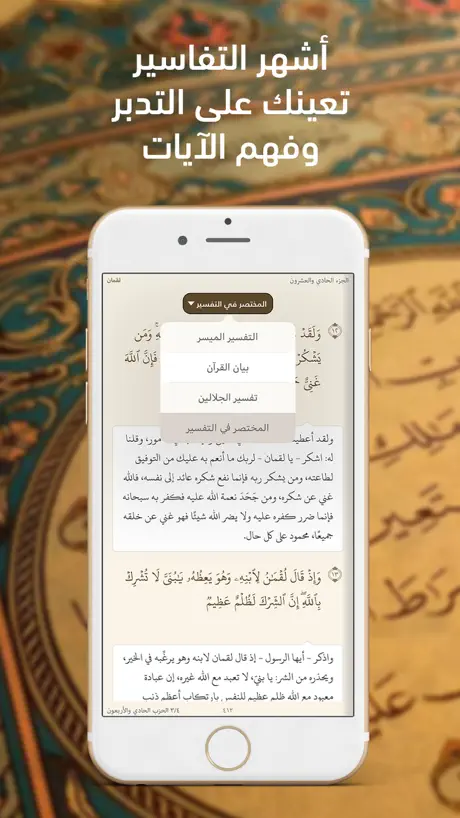 أشهر التفاسير
تعينك على التدبر
وفهم الآيات
الجزء الحادي والعشرون
لقمان
المختصر في التفسير
التفسير الميسر
بيان القرآن
تفسير الجلالين
المختصر في التفسير
١٢ وَلَقَدْ وَمَن
يَشْكُرْ فَإِنَّ اللَّهَ
غَنِيٌّ
ولقد أعطينا مور، وقلنا
له: اشكر - يا لقمان - لربك ما أنعم به عليك من التوفيق
لطاعته، ومن يشكر ربه فإنما نفع شكره عائد إلى نفسه، فالله
غني عن شكره، ومن جَحَدَ نعمة الله عليه فكفر به سبحانه
فإنما ضرر كفره عليه ولا يضر الله شيئًا فهو غني عن خلقه
جميعًا، محمود على كل حال.
١٣ وَإِذْ قَالَ لُقْمَٰنُ لِابْنِهِۦ وَهُوَ يَعِظُهُۥ يَٰبُنَيَّ لَا تُشْرِكْ
بِاللَّهِۖ إِنَّ الشِّرْكَ لَظُلْمٌ عَظِيمٌ
واذكر - أيها الرسول - إذ قال لقمان لابنه وهو يرغّبه في الخير،
ويحذره من الشر: يا بنيّ، لا تعبد مع الله غيره، إن عبادة
معبود مع الله ظلم عظيم للنفس بارتكاب أعظم ذنب
٤١٢
٣/٤ الحزب الحادي والأربعون